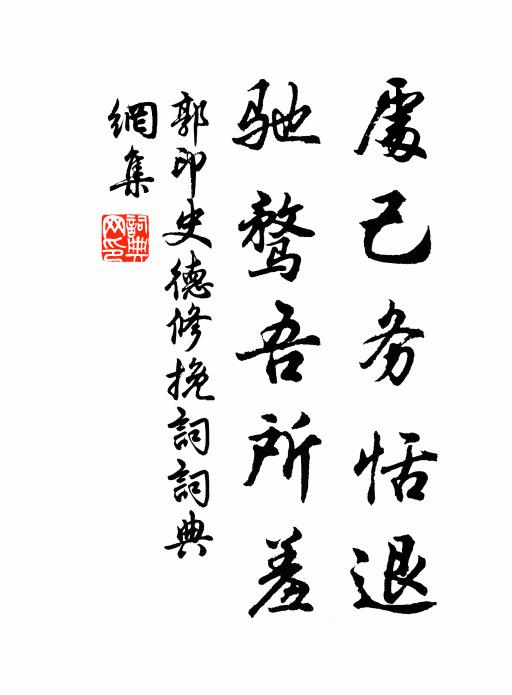 處己务恬退
馳騖吾所羞
郭印史德修挽詞詞典
網集
詞典网印